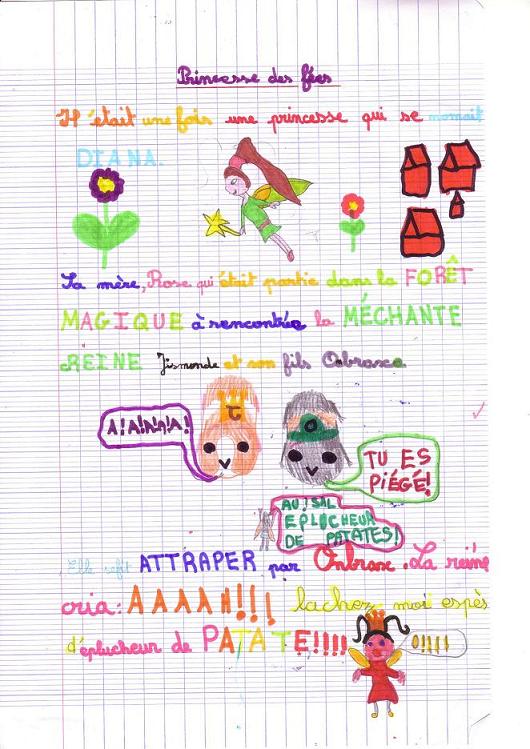 Princesse des fées
Il était une fois une princesse qui se nomait
DIANA.
Sa mère, Rose qui était partie dans la FORÊT
MAGIQUE à rencontrée la MÉCHANTE
REINE Jismonde et son fils Onbrasco
A!A!A!A!A!
TU ES
PIÉGÉ!
AU! SAL
EPLUCHEUR
DE PATATES!
Elle ATTRAPER par Onbrasc. La reine
cria: AAAAH!!! lachez moi espès
d'éplucheur de PATATE!!!!
O!!!!